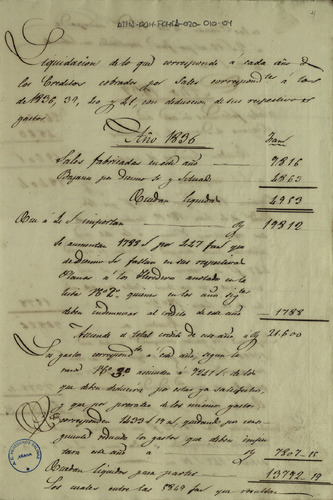 AHN-DGH-FCHSA-020-010-01
Liquidacion de lo que corresponde á cada año de
los Creditos cobrados por Sales correspondtes á los
de 1836, 39, 40 y 41, con deduccion de sus respectivos
gastos
Año 1836
Sales fabricadas en este año 7816
Bajanse por Diezmo
Quedan liquidas 4953
á 4 S importan 19812
Se aumentan 1788 S por 447 fans que
de Diezmo se faltan en sus respectivas
á los Herederos anotado en la
lista Nº 2º quienes en los años sigtes
deben indemnizar al credito de este año 1788
Asciende el total credito de este año á 21600
Los gastos correspondtes á cada año, segun la
Nº 3º ascienden á 9241 S de los
que deben deducirse por estar ya satisfechos,
y que por prorrateo de los mismos gastos
corresponden 1433 S 19 quedando por con-
siguiente reducido los gastos que deben impu-
tarse este año á 7807-15
Quedan liquidos para partir 13792-19
Los cuales entre las 5849 fans que